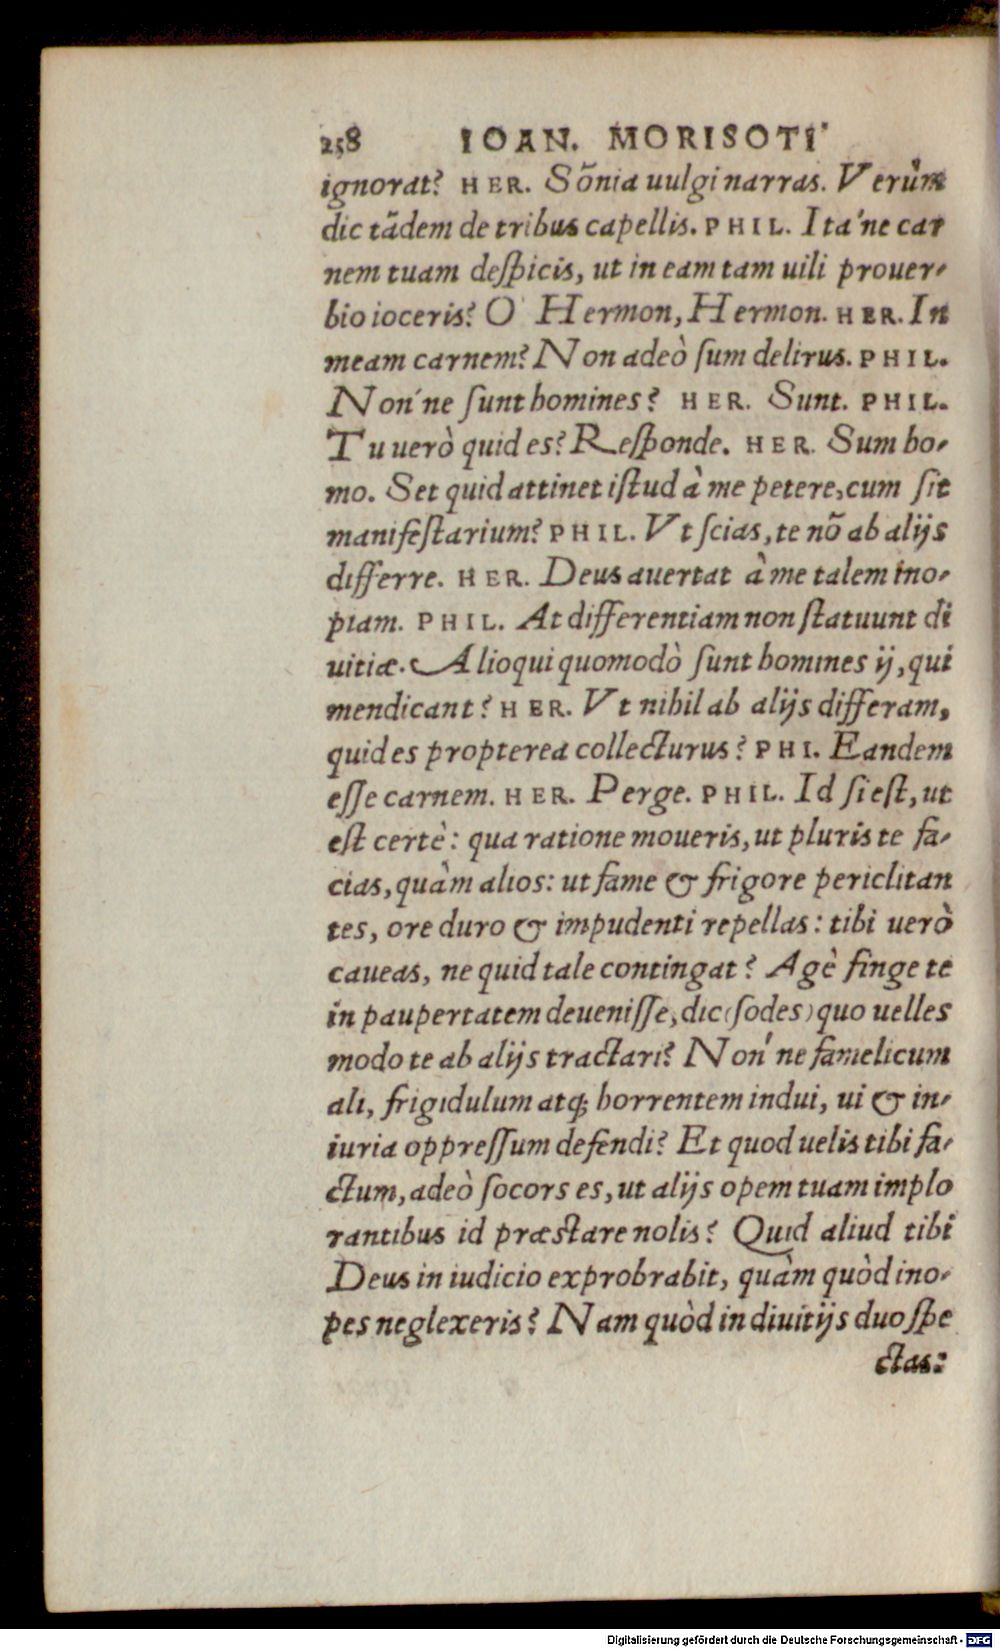 258 IOAN. MORISOTI
ignorat? HER. Sõnia uulgi narras. Verùm
dic tãdem de tribus capellis. PHIL. Ita´ne car
nem tuam despicis, ut in eam tam uili prouer-
bio ioceris? O Hermon, Hermon. HER. In
meam carnem? Non adeò sum delirus. PHIL.
Non´ne sunt homines? HER. Sunt. PHIL.
Tu uerò quid es? Responde. HER. Sum ho-
mo. Set quid attinet istud à me petere, cum sit
manifestarium? PHIL. Vt scias, te nõ ab alijs
differre. HER. Deus auertat à me talem ino-
piam. PHIL. At differentiam non statuunt di
uitiæ. Alioqui quomodò sunt homines ij, qui
mendicant? HER. Vt nihil ab alijs differam,
quid es propterea collecturus? PHI. Eandem
esse carnem. HER. Perge. PHIL. Id si est, ut
est certè: qua ratione moueris, ut pluris te fa-
cias, quàm alios: ut fame & frigore periclitan
tes, ore duro & impudenti repellas: tibi uerò
caueas, ne quid tale contingat? Agè finge te
in paupertatem deuenisse, dic (sodes) quo uelles
modo te ab alijs tractari? Non´ne famelicum
ali, frigidulum atq; horrentem indui, ui & in-
iuria oppressum defendi? Et quod uelis tibi fa-
ctum, adeò socors es, ut alijs opem tuam implo
rantibus id præstare nolis? Quid aliud tibi
Deus in iudicio exprobrabit, quàm quòd ino-
pes neglexeris? Nam quòd in diuitijs duo spe
ctas:
Digitalisierung gefördert durch die Deutsche Forschungsgemeinschaft - DFG